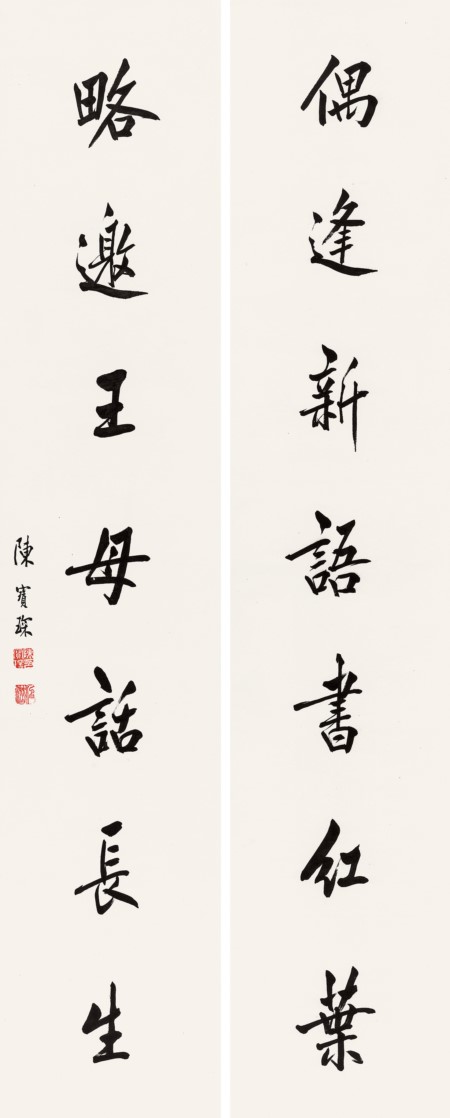 偶逢新語書紅葉
略邀王母話長生
陳寶琛